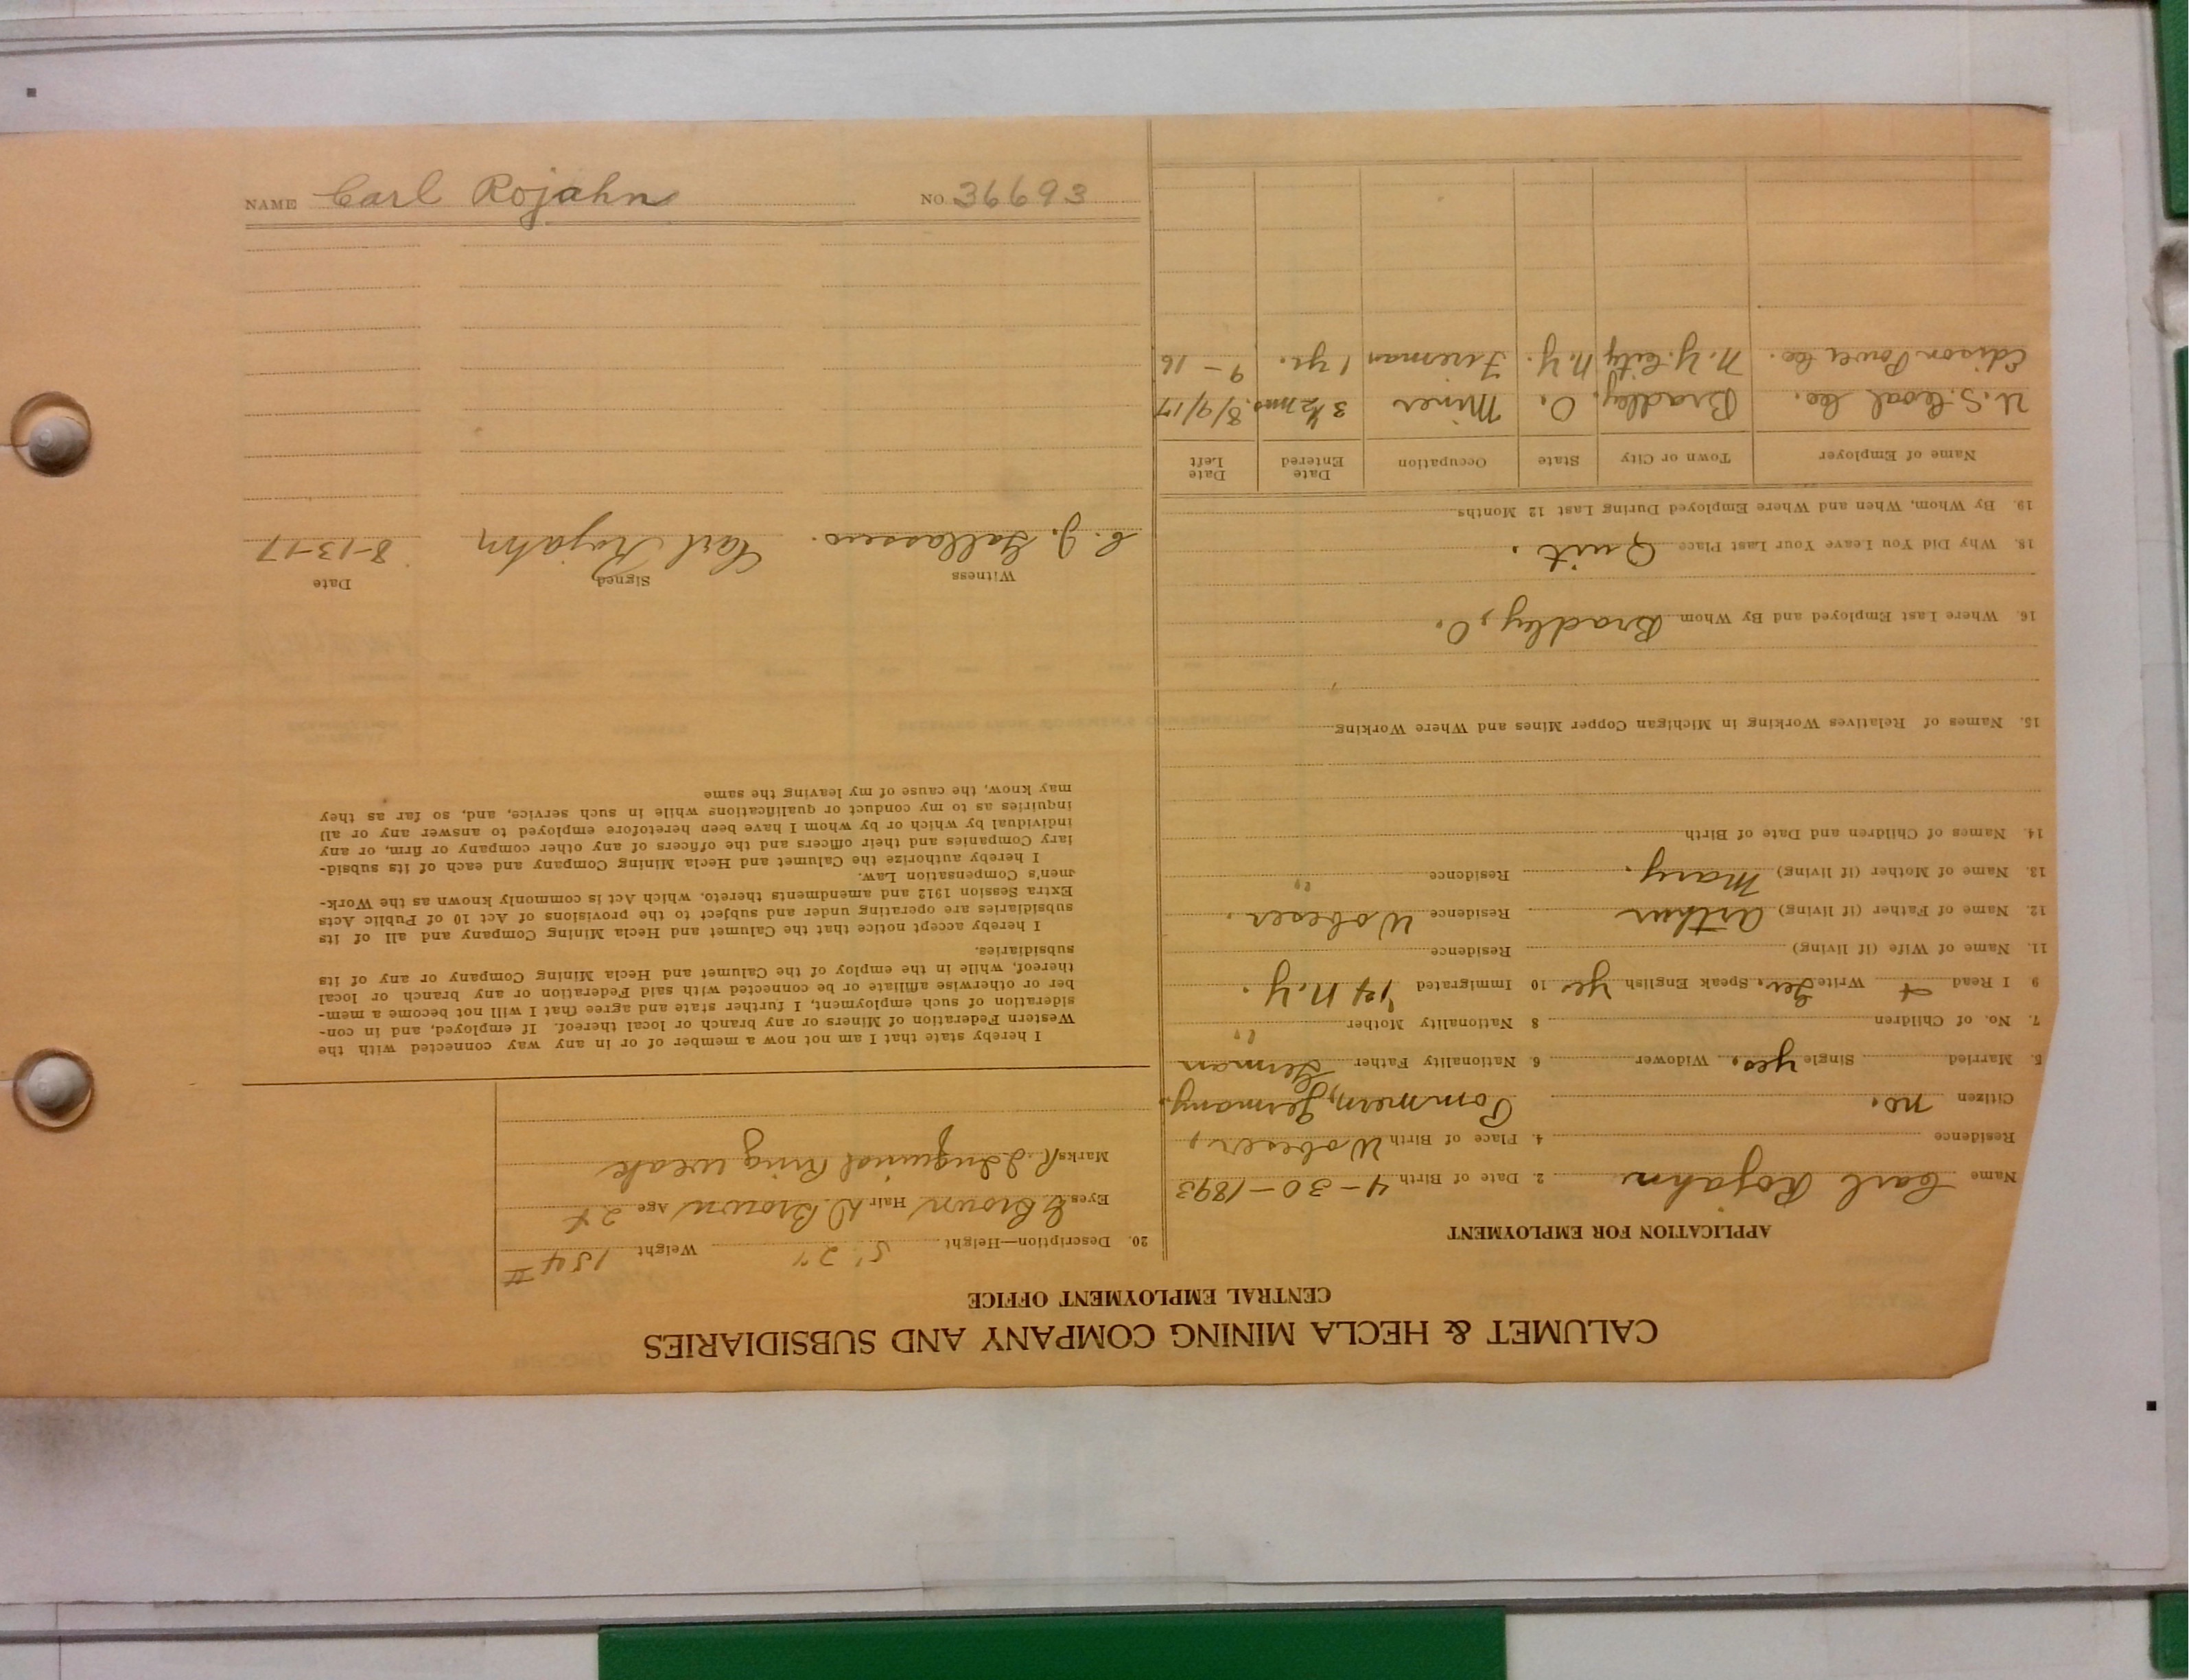 CALUMET & HECLA MINING COMPANY AND SUBSIDIARIES
CENTRAL EMPLOYMENT OFFICE
APPLICATION FOR EMPLOYMENT
Name Carl Rojahn 2. Date of Birth 4-30-1893
Residence 4. Place of Birth Wobeser,
Citizen no. Pommern, Germany.
5. Married Single yes. Widower 6. Nationality Father German
7. No. of Children 8 Nationality Mother "
9 I Read & Write Ger. Speak English yes 10 Immigrated '14 N.Y.
11. Name of Wife (if living) Residence
12. Name of Father (if living) Arthur Residence Wobeser.
13. Name of Mother (if living) Mary. Residence "
14. Names of Children and Date of Birth
15. Names of Relatives Working in Michigan Copper Mines and Where Working
16. Where Last Employed and By Whom Bradley, O.
18. Why Did You Leave Your Last Place Quit.
19. By Whom, When and Where Employed During Last 12 Months
Name of Employer Town or City State Occupation Date Entered Date Left
U.S. Coal Co. Bradley, O. Miner 3½ mos. 8/9/17
Edison Power Co. N.Y. City N.Y. Fireman 1 yr. 9-16
20. Description—Height 5' 2" Weight 154 #
Eyes Brown Hair D. Brown Age 24
Marks R. Inguinal Ring weak
I hereby state that I am not now a member of or in any way connected with the
Western Federation of Miners or any branch or local thereof. If employed, and in con-
sideration of such employment, I further state and agree that I will not become a mem-
ber or otherwise affiliate or be connected with said Federation or any branch or local
thereof, while in the employ of the Calumet and Hecla Mining Company or any of its
subsidiaries.
I hereby accept notice that the Calumet and Hecla Mining Company and all of its
subsidiaries are operating under and subject to the provisions of Act 10 of Public Acts
Extra Session 1912 and amendments thereto, which Act is commonly known as the Work-
men's Compensation Law.
I hereby authorize the Calumet and Hecla Mining Company and each of its subsid-
iary Companies and their officers and the officers of any other company or firm, or any
individual by which or by whom I have been heretofore employed to answer any or all
inquiries as to my conduct or qualifications while in such service, and, so far as they
may know, the cause of my leaving the same
Witness Signed Date
C. J. Carl Rojahn 8-13-17
NAME Carl Rojahn NO. 36693